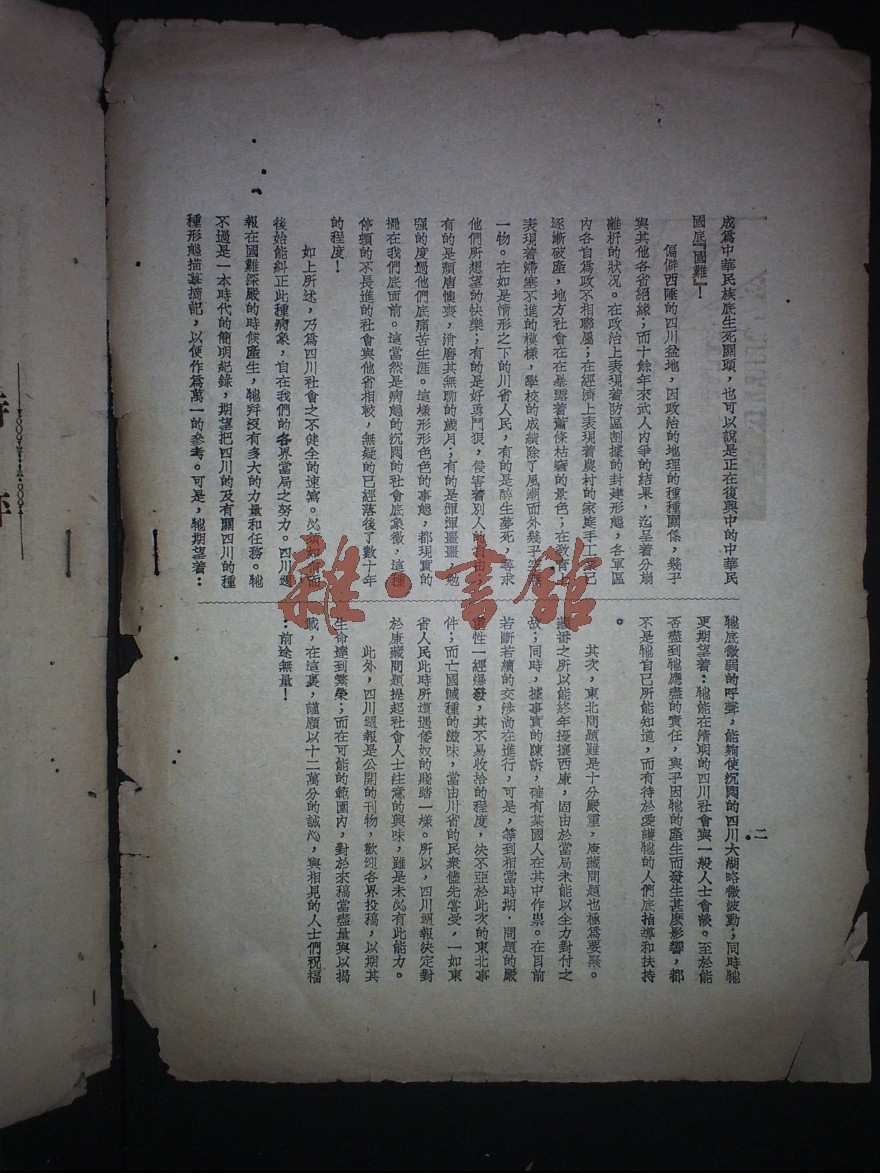 二
成爲中華民族底生死關頭，也可以說是正在復興中的中華民
國底『國難』！
偏僻西陲的四川盆地，因政治的地理的種種關係，幾乎
與其他各省絕緣；而十餘年來武人內爭的結果，迄呈着分崩
離析的狀況。在政治上表現着防區割據的封建形態，各軍區
內各自爲政不相聯屬；在經濟上表現着農村的家庭手工業已
逐漸破產，地方社會在在暴露着蕭條枯窘的景色；在教育上
表現着滯塞不進的模樣，學校的成績除了風潮而外幾乎空無
一物。在如是情形之下的川省人民，有的是醉生夢死，尋求
他們所想望的快樂；有的是好勇鬥狠，侵害着別人的自由；
有的是頹唐懊喪，消磨其無聊的歲月；有的是渾渾噩噩，勉
强的度過他們底痛苦生涯。這樣形形色色的事態，都現實的
擺在我們底面前。這當然是病態的沉悶的社會底象徵，這種
停頓的不長進的社會與他省相較，無疑的已經落後了數十年
的程度！
如上所述，乃爲四川社會之不健全的速寫。必須如何而
後始能糾正此種病象，自在我們的各界當局之努力。四川週
報在國難深嚴的時候產生，牠幷沒有多大的力量和任務。牠
不過是一本時代的簡明紀錄，期望把四川的及有關四川的種
種形態描摹摘記，以便作爲萬一的參考。可是，牠期望着：
牠底微弱的呼聲，能夠使沉悶的四川大湖略微波動；同時牠
更期望着：牠能在清明的四川社會與一般人士會談。至於能
否盡到牠應盡的責任，與乎因牠的產生而發生甚麼影響，都
不是牠自己所能知道，而有待於愛護牠的人們底指導和扶持
。
其次，東北問題雖是十分嚴重，康藏問題也極爲要緊。
藏番之所以能終年擾攘西康，固由於當局未能以全力對付之
故；同時，據事實的陳訴，確有某國人在其中作祟。在目前
若斷若續的交涉尚在進行，可是，等到相當時期．問題的嚴
重性一經爆發，其不易收拾的程度，決不亞於此次的東北事
件；而亡國滅種的滋味，當由川省的民衆儘先嘗受，一如東
省人民此時所遭遇倭奴的賤踏一樣。所以，四川週報決定對
於康藏問題提起社會人士注意的興味，雖是未必有此能力。
此外，四川週報是公開的刊物，歡迎各界投稿，以期其
生命達到繁榮；而在可能的範圍內，對於來稿當盡量與以揭
載，在這裏，謹願以十二萬分的誠心，與相見的人士們祝福
：前途無量！
雜·書館